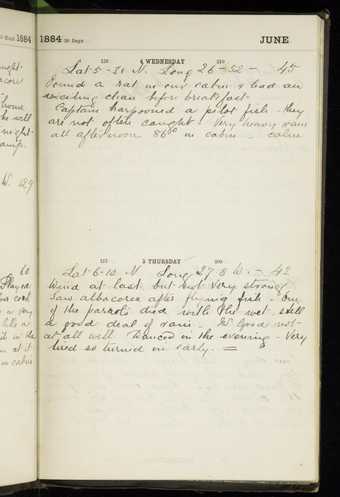 1884 30 Days JUNE
4 WEDNESDAY
Lat 5-31 N. Long 26-32 - 45
Found a rat in our cabin & had an
exciting chase before breakfast.
Captain harpooned a pilot fish - they
are not often caught. Very heavy rain
all afternoon 86° in cabin - calm
5 THURSDAY
Lat 6-10 N Long 27.8 W. - 42
Wind at last but not very strong
Saw albacores after flying fish - One
of the parrots died with the wet. Still
a good deal of rain. not
at all well. Danced in the evening - Very
tired so turned in early. =
1884
home
W. 129
60
Played